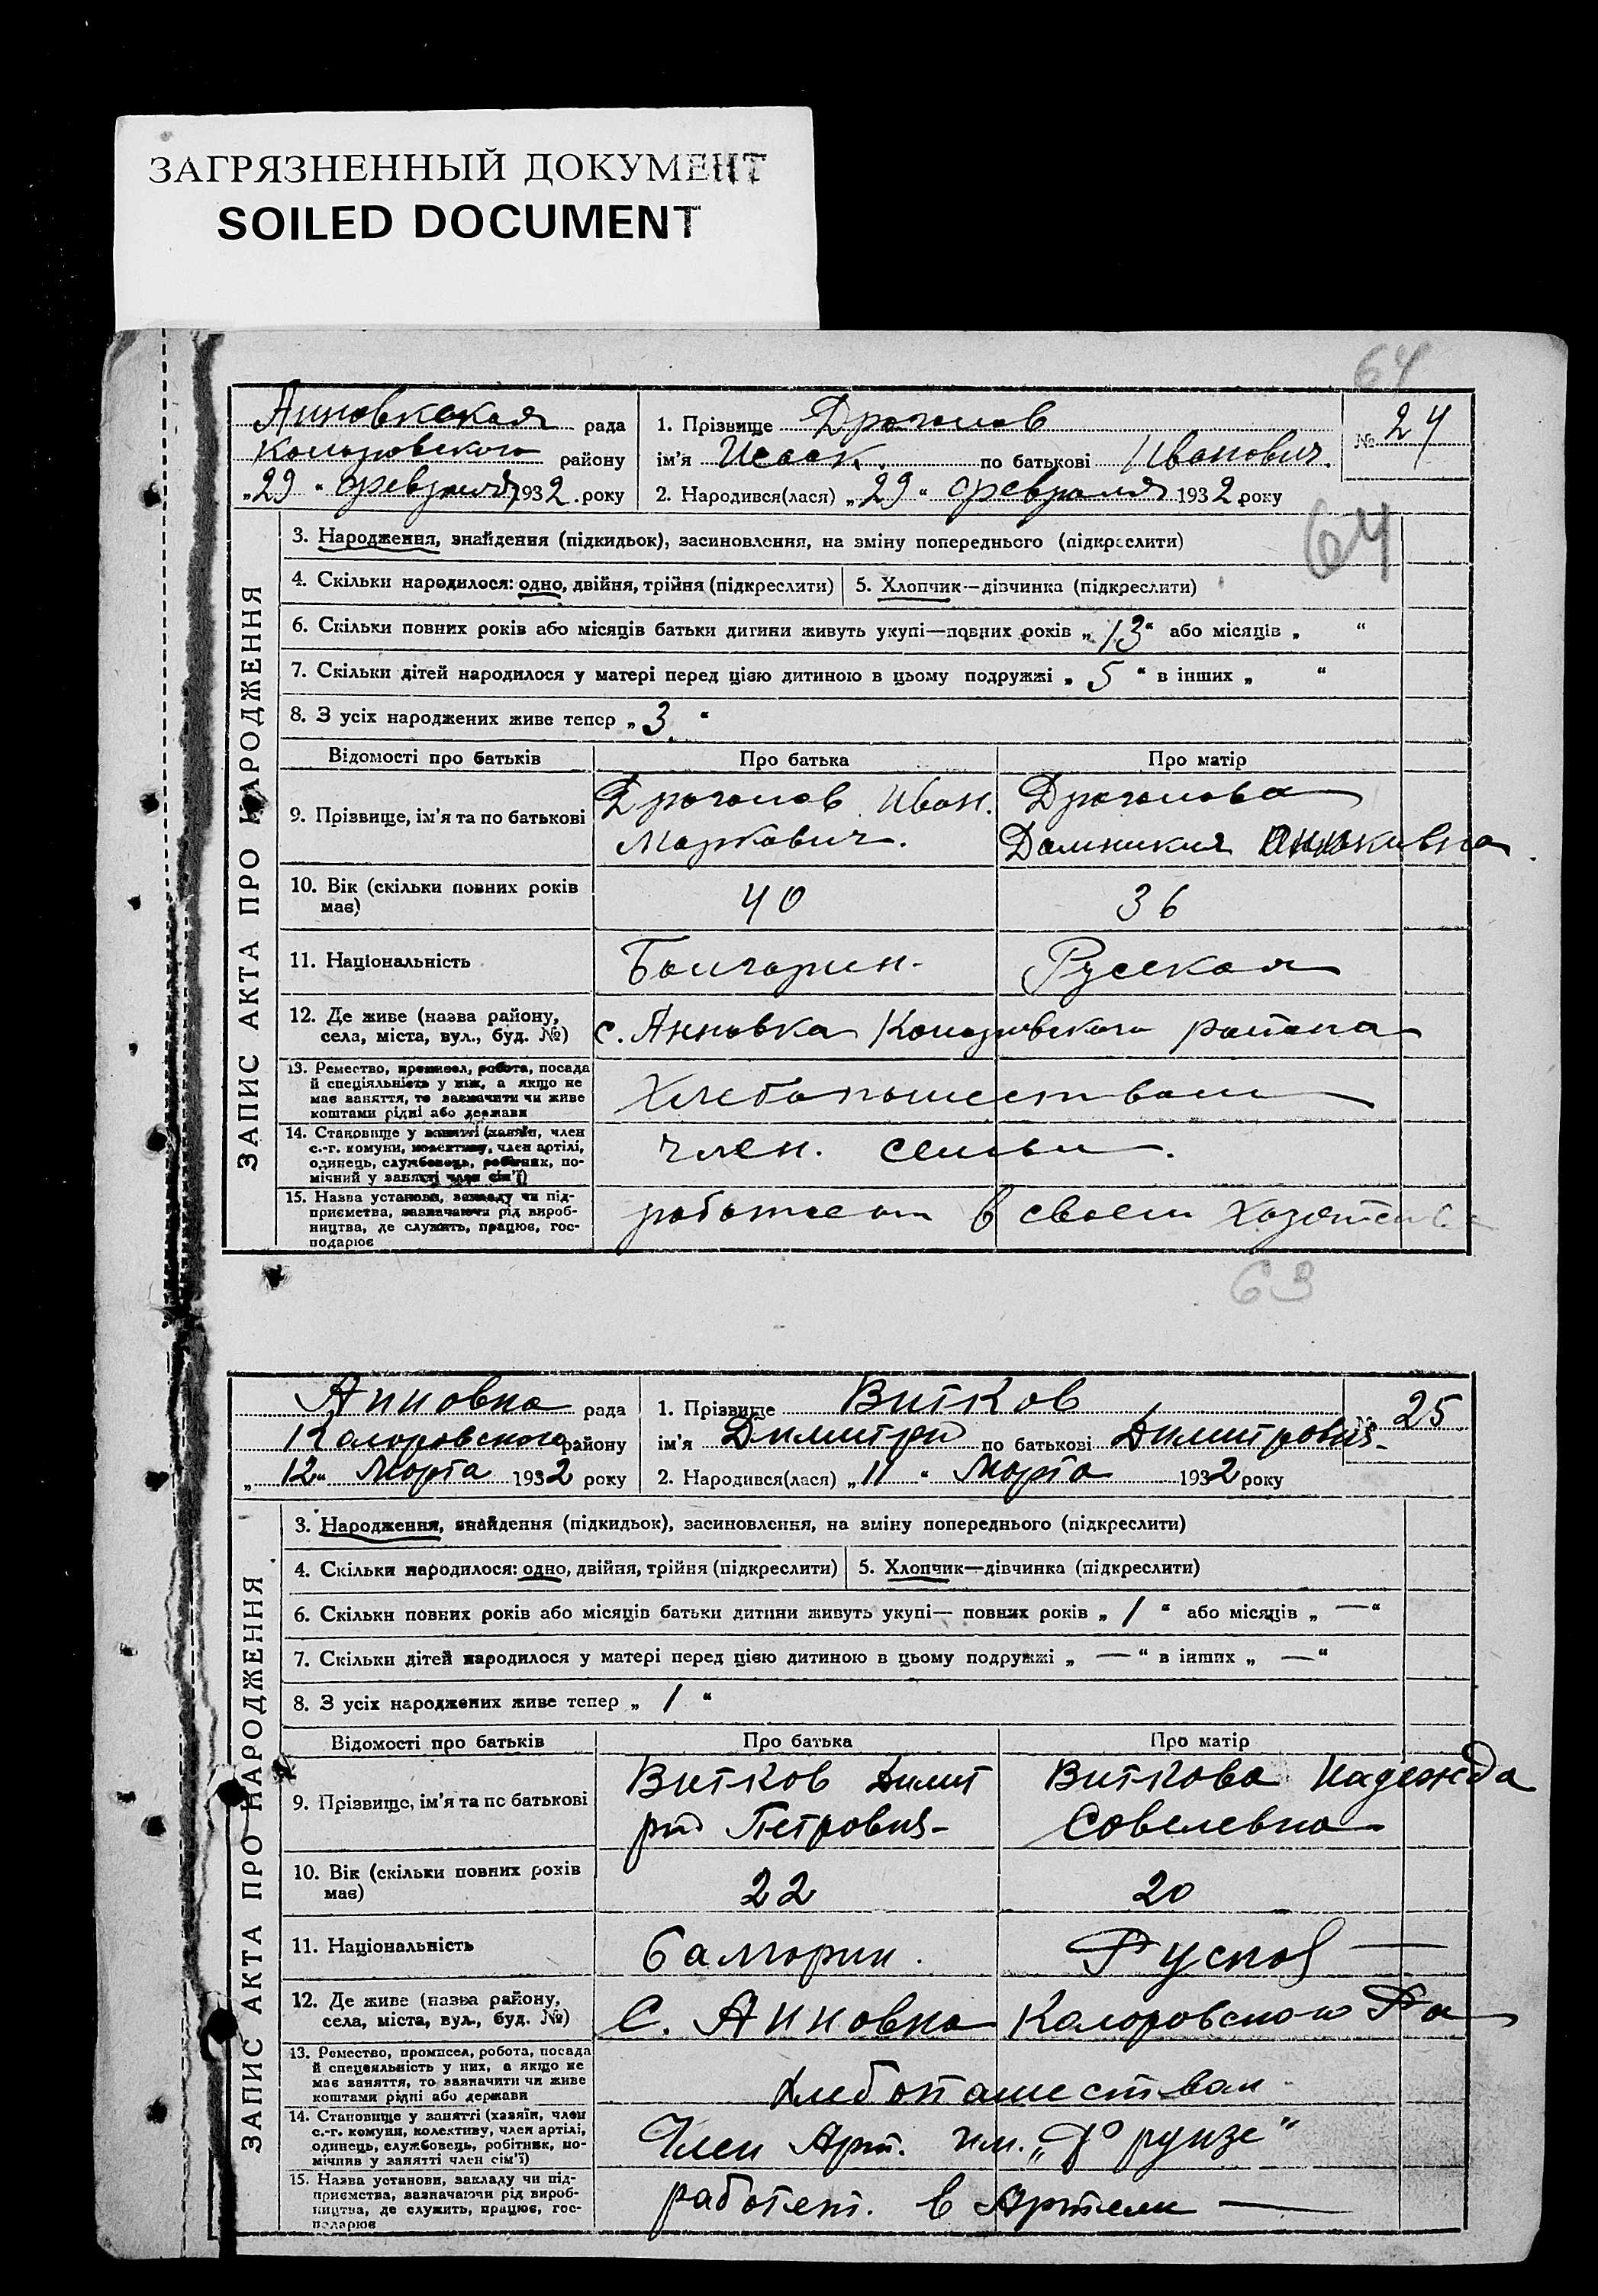 ЗАГРЯЗНЕННЫЙ ДОКУМЕНТ
SOILED DOCUMENT
64
Анновкская рада
Коларовского району
„29“ февраля 1932. року
1. Прізвище Драгомов
ім'я Исаак. по батькові Иванович.
2. Народився(лася) „29“ февраля 1932 року
№ 24
64
ЗАПИС АКТА ПРО НАРОДЖЕННЯ
3. Народження, знайдення (підкидьок), засиновлення, на зміну попереднього (підкреслити)
4. Скільки народилося: одно, двійня, трійня (підкреслити) 5. Хлопчик—дівчинка (підкреслити)
6. Скільки повних років або місяців батьки дитини живуть укупі—повних років „13“ або місяців „ “
7. Скільки дітей народилося у матері перед цією дитиною в цьому подружжі „5“ в інших „ “
8. З усіх народжених живе тепер „3.“
Відомості про батьків Про батька Про матір
9. Прізвище, ім'я та по батькові
Иван. Маркович.
10. Вік (скільки повних років має) 40 36
11. Національність Болгарин. Русская
12. Де живе (назва району, села, міста, вул., буд. №) с. Анновка Коларовского района
13. Ремество, промисел, робота, посада
й спеціяльність у них, а якщо не
має заняття, то зазначити чи живе
коштами рідні або держави
Хлебопашеством
14. Становище у занятті (хазяїн, член
с.-г. комуни, колективу, член артілі,
одинець, службовець, робітник, по-
мічний у занятті член сім'ї)
член. семьи.
15. Назва установи, закладу чи під-
приємства, зазначаючи рід вироб-
ництва, де служить, працює, гос-
подарює
работает в своем хозяйстве
63
Анновка рада
Коларовского району
„12“ Марта 1932 року
1. Прізвище Витков
ім'я Димитрий по батькові Димитрович-
2. Народився(лася) „11“ Марта 1932 року
№ 25
ЗАПИС АКТА ПРО НАРОДЖЕННЯ
3. Народження, знайдення (підкидьок), засиновлення, на зміну попереднього (підкреслити)
4. Скільки народилося: одно, двійня, трійня (підкреслити) 5. Хлопчик—дівчинка (підкреслити)
6. Скільки повних років або місяців батьки дитини живуть укупі— повних років „1“ або місяців „—“
7. Скільки дітей народилося у матері перед цією дитиною в цьому подружжі „—“ в інших „—“
8. З усіх народжених живе тепер „1“
Відомості про батьків Про батька Про матір
9. Прізвище, ім'я та по батькові
Витков Димит
рий Петрович-
Виткова Надежда
Совелевна-
10. Вік (скільки повних років має) 22 20
11. Національність балгорин. Руской —
12. Де живе (назва району, села, міста, вул., буд. №) С. Анновка Коларовского Р-а
13. Ремество, промисел, робота, посада
й спеціяльність у них, а якщо не
має заняття, то зазначити чи живе
коштами рідні або держави
хлебопашествам
14. Становище у занятті (хазяїн, член
с.-г. комуни, колективу, член артілі,
одинець, службовець, робітник, по-
мічник у занятті член сім'ї)
Член Арт. им. „Фрунзе“
15. Назва установи, закладу чи під-
приємства, зазначаючи рід вироб-
ництва, де служить, працює, гос-
подарює
работает. в Артели —